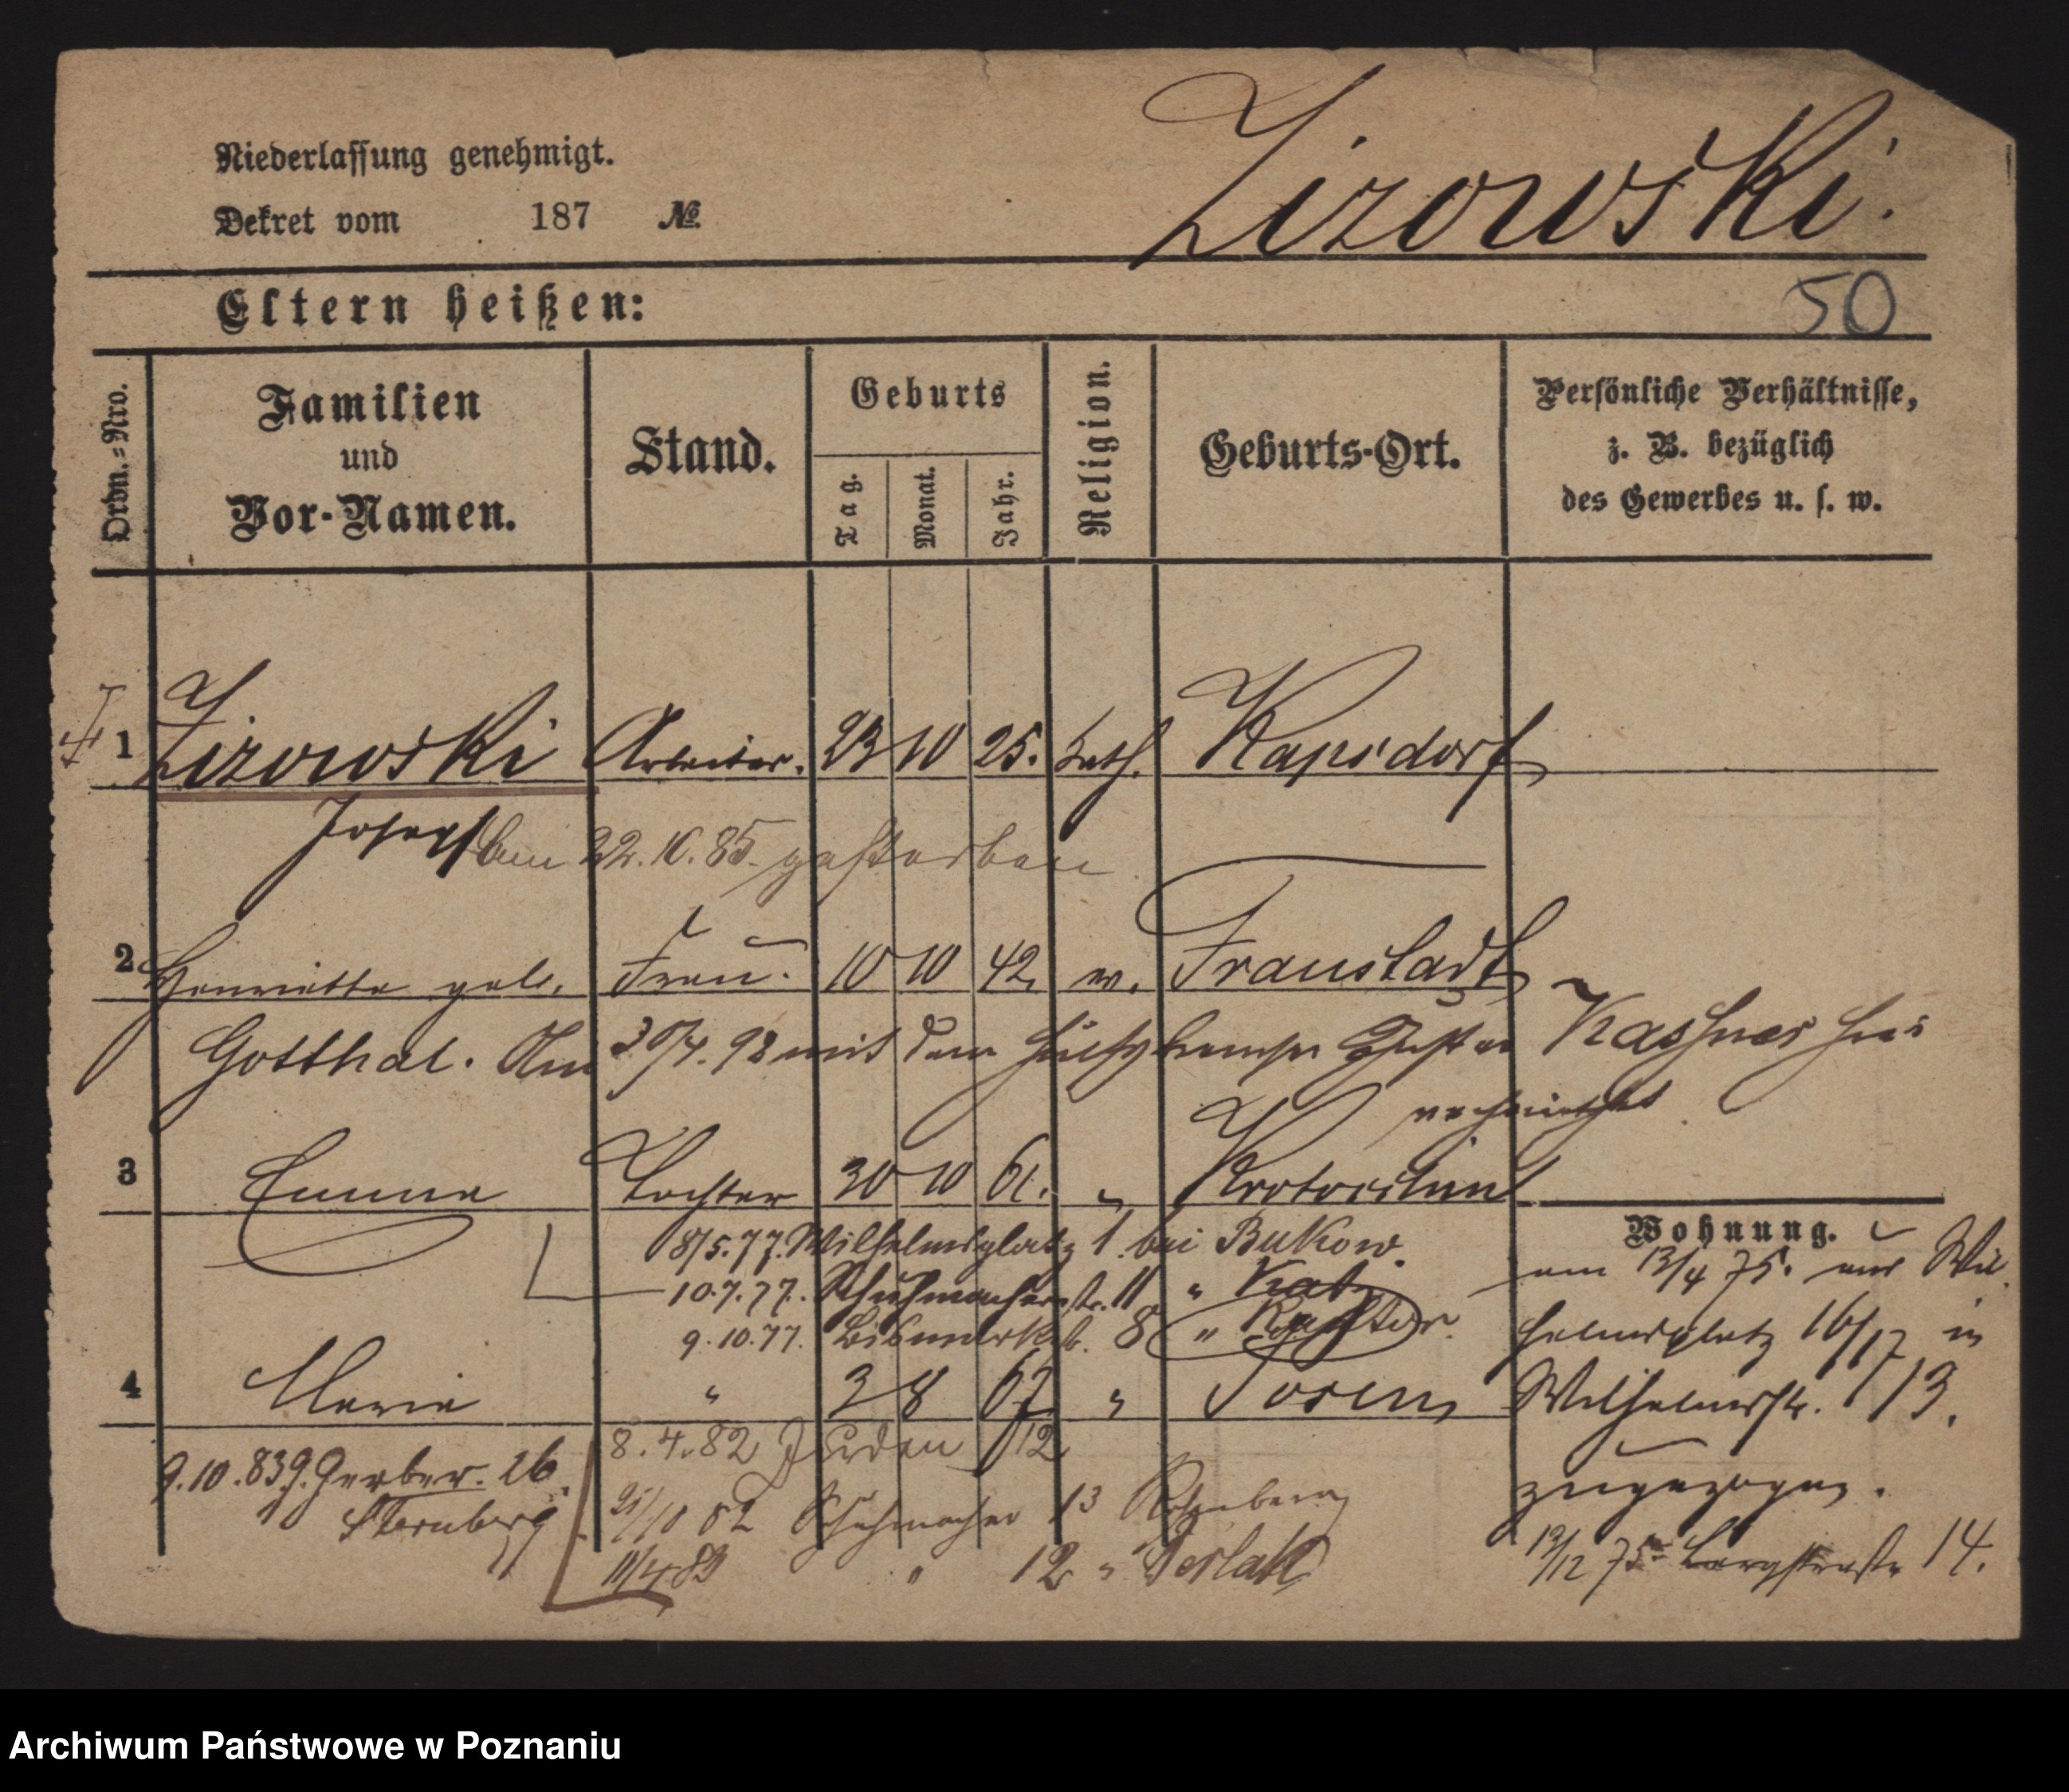 Niederlassung genehmigt.
Dekret vom 187 №
Lizowski.
Eltern heißen:
50
Ordn.-Nro.
Familien und Vor-Namen.
Stand.
Geburts
Tag.
Monat.
Jahr.
Religion.
Geburts-Ort.
Persönliche Verhältnisse, z. B. bezüglich des Gewerbes u. s. w.
1 Lizowski Arbeiter. 23 10 25. kath. Kapsdorf
Josef am 22. 10. 85. gestorben
2 Henriette geb. Frau. 10 10 42. Fraustadt
Gotthal. Am 30/4. 98 mit dem hier
verheirathet
3 Emma Tochter 30 10 61. " Krotoschin
Wohnung.
8/5. 77. Wilhelmsplatz 1. bei Bukow.
10. 7. 77. Schuhmacherstr. 11 " Katz
9. 10. 77. Bismarkstr. 8 "
4 Marie " 3 8 67. " Posen
am 13/4 75. aus Wil
helmsplatz 16/17 in
Wilhelmstr. 13.
zugezogen.
13/12 75 Bergstraße 14.
8. 4. 82 Juden 12
9. 10. 83 g. Gerber. 26.
Sternberg
25/10 82 Schuhmacher 13 Rosenberg
" 12 "
Archiwum Państwowe w Poznaniu